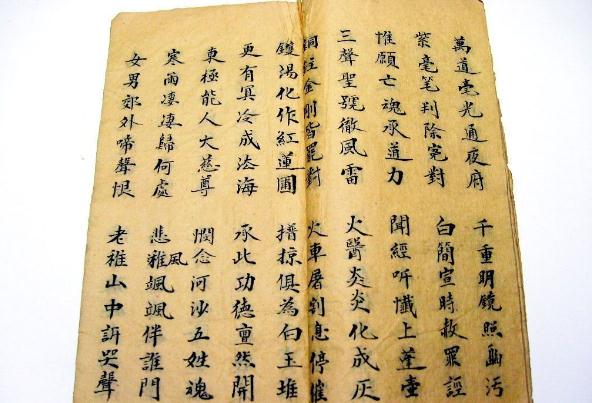 萬道毫光通夜府 千重明鏡照幽污
紫毫笔判除寃對 白簡宣時赦罪誙
惟願亡魂承道力 聞經听懺上蓬壺
三聲聖號徹風雷 火醫炎炎化成灰
銅柱金剛皆罷對 火車屠割息停催
鑊湯化作紅蓮圃 掠俱為白玉堆
更有冥冷成法海 承此功德亶然開
東極能人大慈尊 憫念河沙五姓魂
寒雨凄凄歸何處 悲風雅颯颯伴誰門
女男郊外啼聲恨 老稚山中訴哭聲